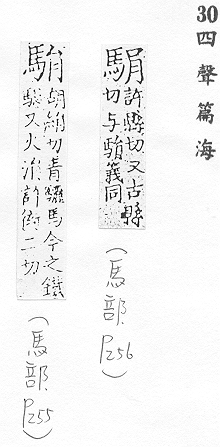 30 四聲篇海
駽許縣切又古縣
切与䮍義同
(馬部
P256)
䮍胡鎖切青驪馬今之鐵
驄又火涓許衒二切
(馬部
P255)